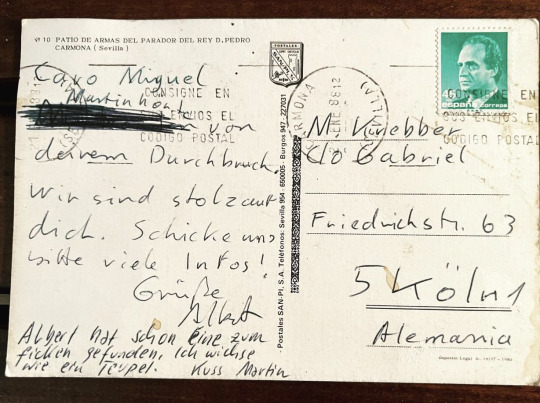 Nº 10 PATIO DE ARMAS DEL PARADOR DEL REY D. PEDRO
CARMONA (Sevilla)
Caro Miguel
Martin
von
deinem Durchbruch.
Wir sind stolz auf
dich. Schicke uns
bitte viele Infos!
Grüße
Albert
Albert hat schon eine zum
ficken gefunden. Ich wichse
wie ein Teufel. Kuss Martin
POSTALES
SAN-PI
- Postales SAN-PI, S.A. Teléfonos: Sevilla 954 - 650005 - Burgos 947 - 227031
CONSIGNE EN
CODIGO POSTAL
ENE 88
CONSIGNE EN
SUS ENVIOS EL
CODIGO POSTAL
españa correos
M. Knebber
c/o Gabriel
Friedrichstr. 63
5 Köln 1
Alemania
Deposito Legal